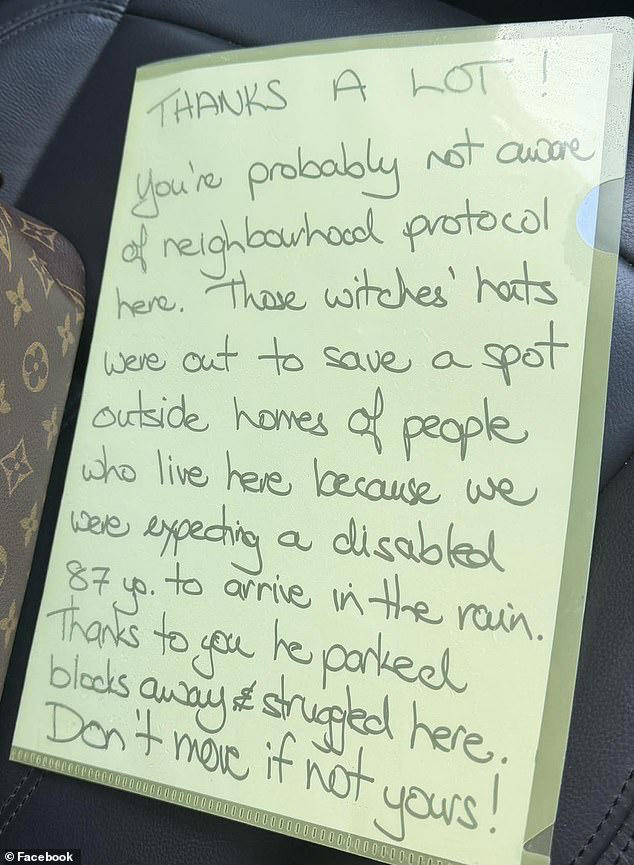 THANKS A LOT!
You're probably not aware
of neighbourhood protocol
here. Those witches' hats
were out to save a spot
outside homes of people
who live here because we
were expecting a disabled
87 yo. to arrive in the rain.
Thanks to you he parked
blocks away & struggled here.
Don't move if not yours!
© Facebook